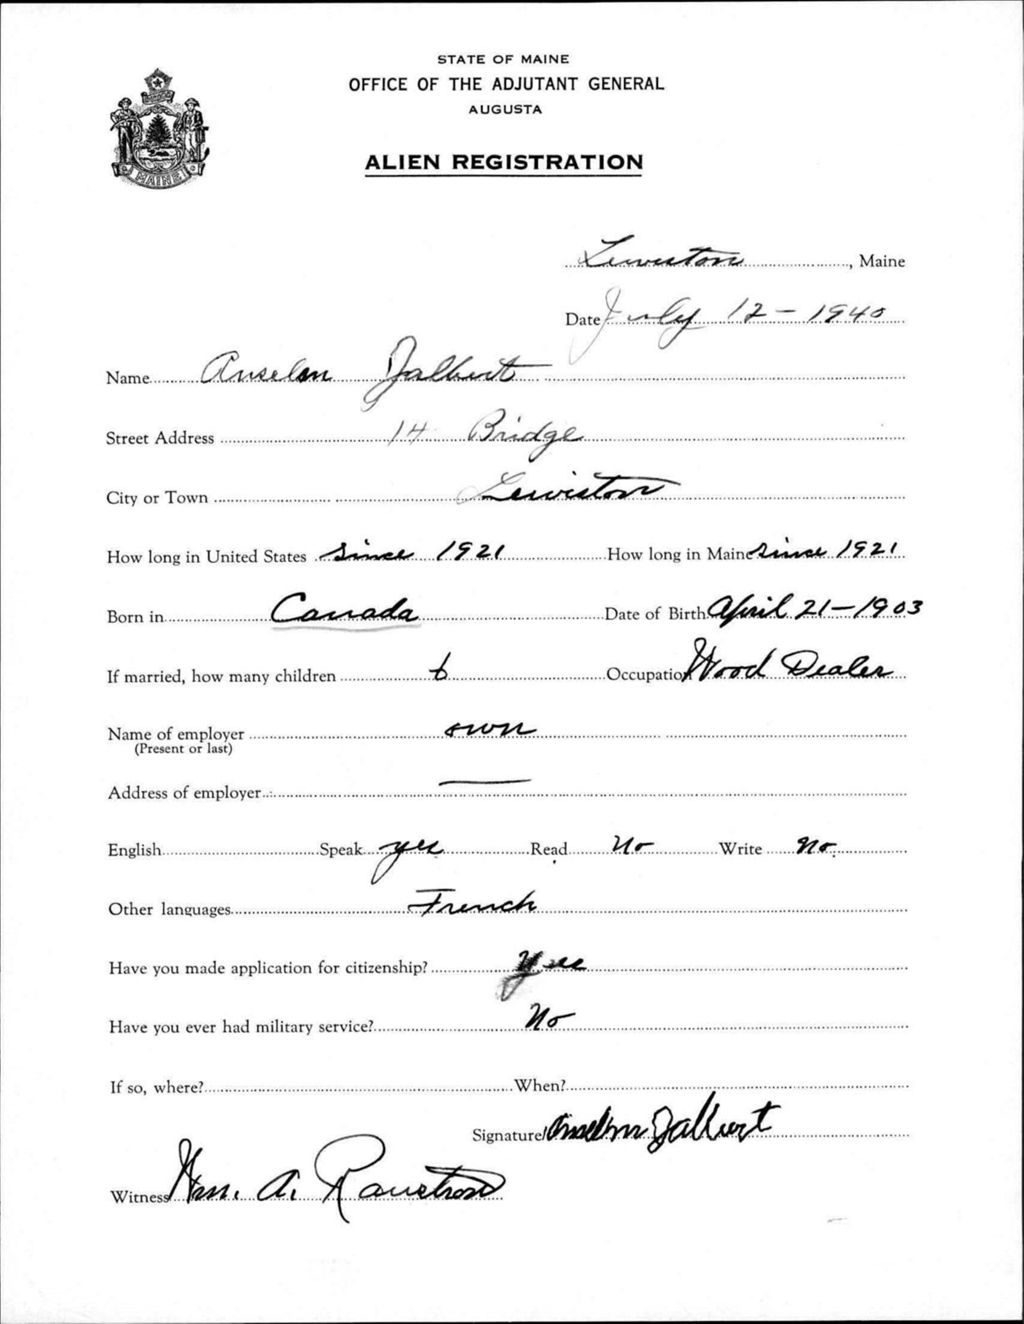 STATE OF MAINE
OFFICE OF THE ADJUTANT GENERAL
AUGUSTA
ALIEN REGISTRATION
MAINE
Lewiston, Maine
Date July 12 - 1940
Name Anselm Jalbert
Street Address 14 Bridge
City or Town Lewiston
How long in United States since 1921 How long in Maine since 1921
Born in Canada Date of Birth April 21-1903
If married, how many children 6 Occupation Wood Dealer
Name of employer own
(Present or last)
Address of employer —
English Speak yes Read No Write No.
Other languages French
Have you made application for citizenship? Yes
Have you ever had military service? No
If so, where? When?
Signature Anselm Jalbert
Witness Wm. A.